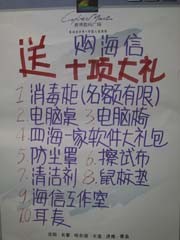 购海信
送 十项大礼
1 消毒柜(名额有限)
2 电脑桌 3 电脑椅
4 四海一家软件大礼包
5 防尘罩 6 擦试布
7 清洁剂 8 鼠标垫
9 海信工作室
10 耳麦